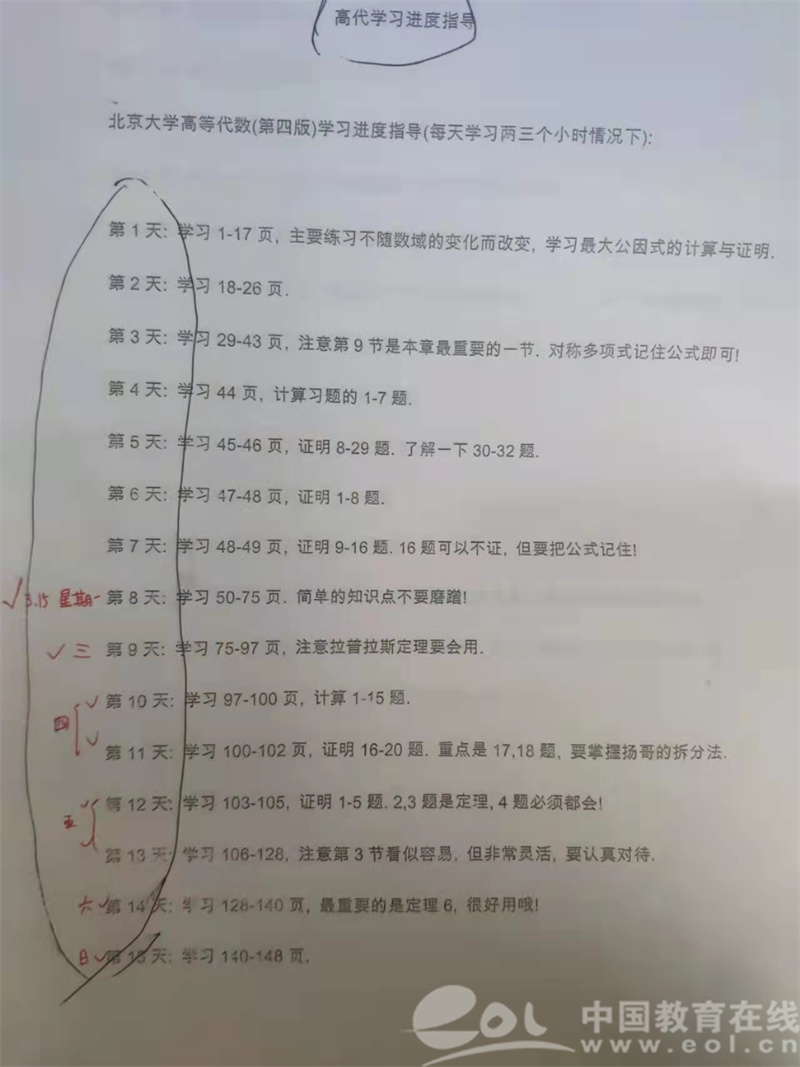 高代学习进度指导
北京大学高等代数(第四版)学习进度指导(每天学习两三个小时情况下):
第 1 天: 学习 1-17 页, 主要练习不随数域的变化而改变, 学习最大公因式的计算与证明.
第 2 天: 学习 18-26 页.
第 3 天: 学习 29-43 页, 注意第 9 节是本章最重要的一节. 对称多项式记住公式即可!
第 4 天: 学习 44 页, 计算习题的 1-7 题.
第 5 天: 学习 45-46 页, 证明 8-29 题. 了解一下 30-32 题.
第 6 天: 学习 47-48 页, 证明 1-8 题.
第 7 天: 学习 48-49 页, 证明 9-16 题. 16 题可以不证, 但要把公式记住!
√3.15 星期一 第 8 天: 学习 50-75 页. 简单的知识点不要磨蹭!
√ 三 第 9 天: 学习 75-97 页, 注意拉普拉斯定理要会用.
四 √ 第 10 天: 学习 97-100 页, 计算 1-15 题.
√ 第 11 天: 学习 100-102 页, 证明 16-20 题. 重点是 17,18 题, 要掌握扬哥的拆分法.
五 √ 第 12 天: 学习 103-105, 证明 1-5 题. 2,3 题是定理, 4 题必须都会!
√ 第 13 天: 学习 106-128, 注意第 3 节看似容易, 但非常灵活, 要认真对待.
六 √ 第 14 天: 学习 128-140 页, 最重要的是定理 6, 很好用哦!
日 √ 第 15 天: 学习 140-148 页.
eol 中国教育在线
www.eol.cn